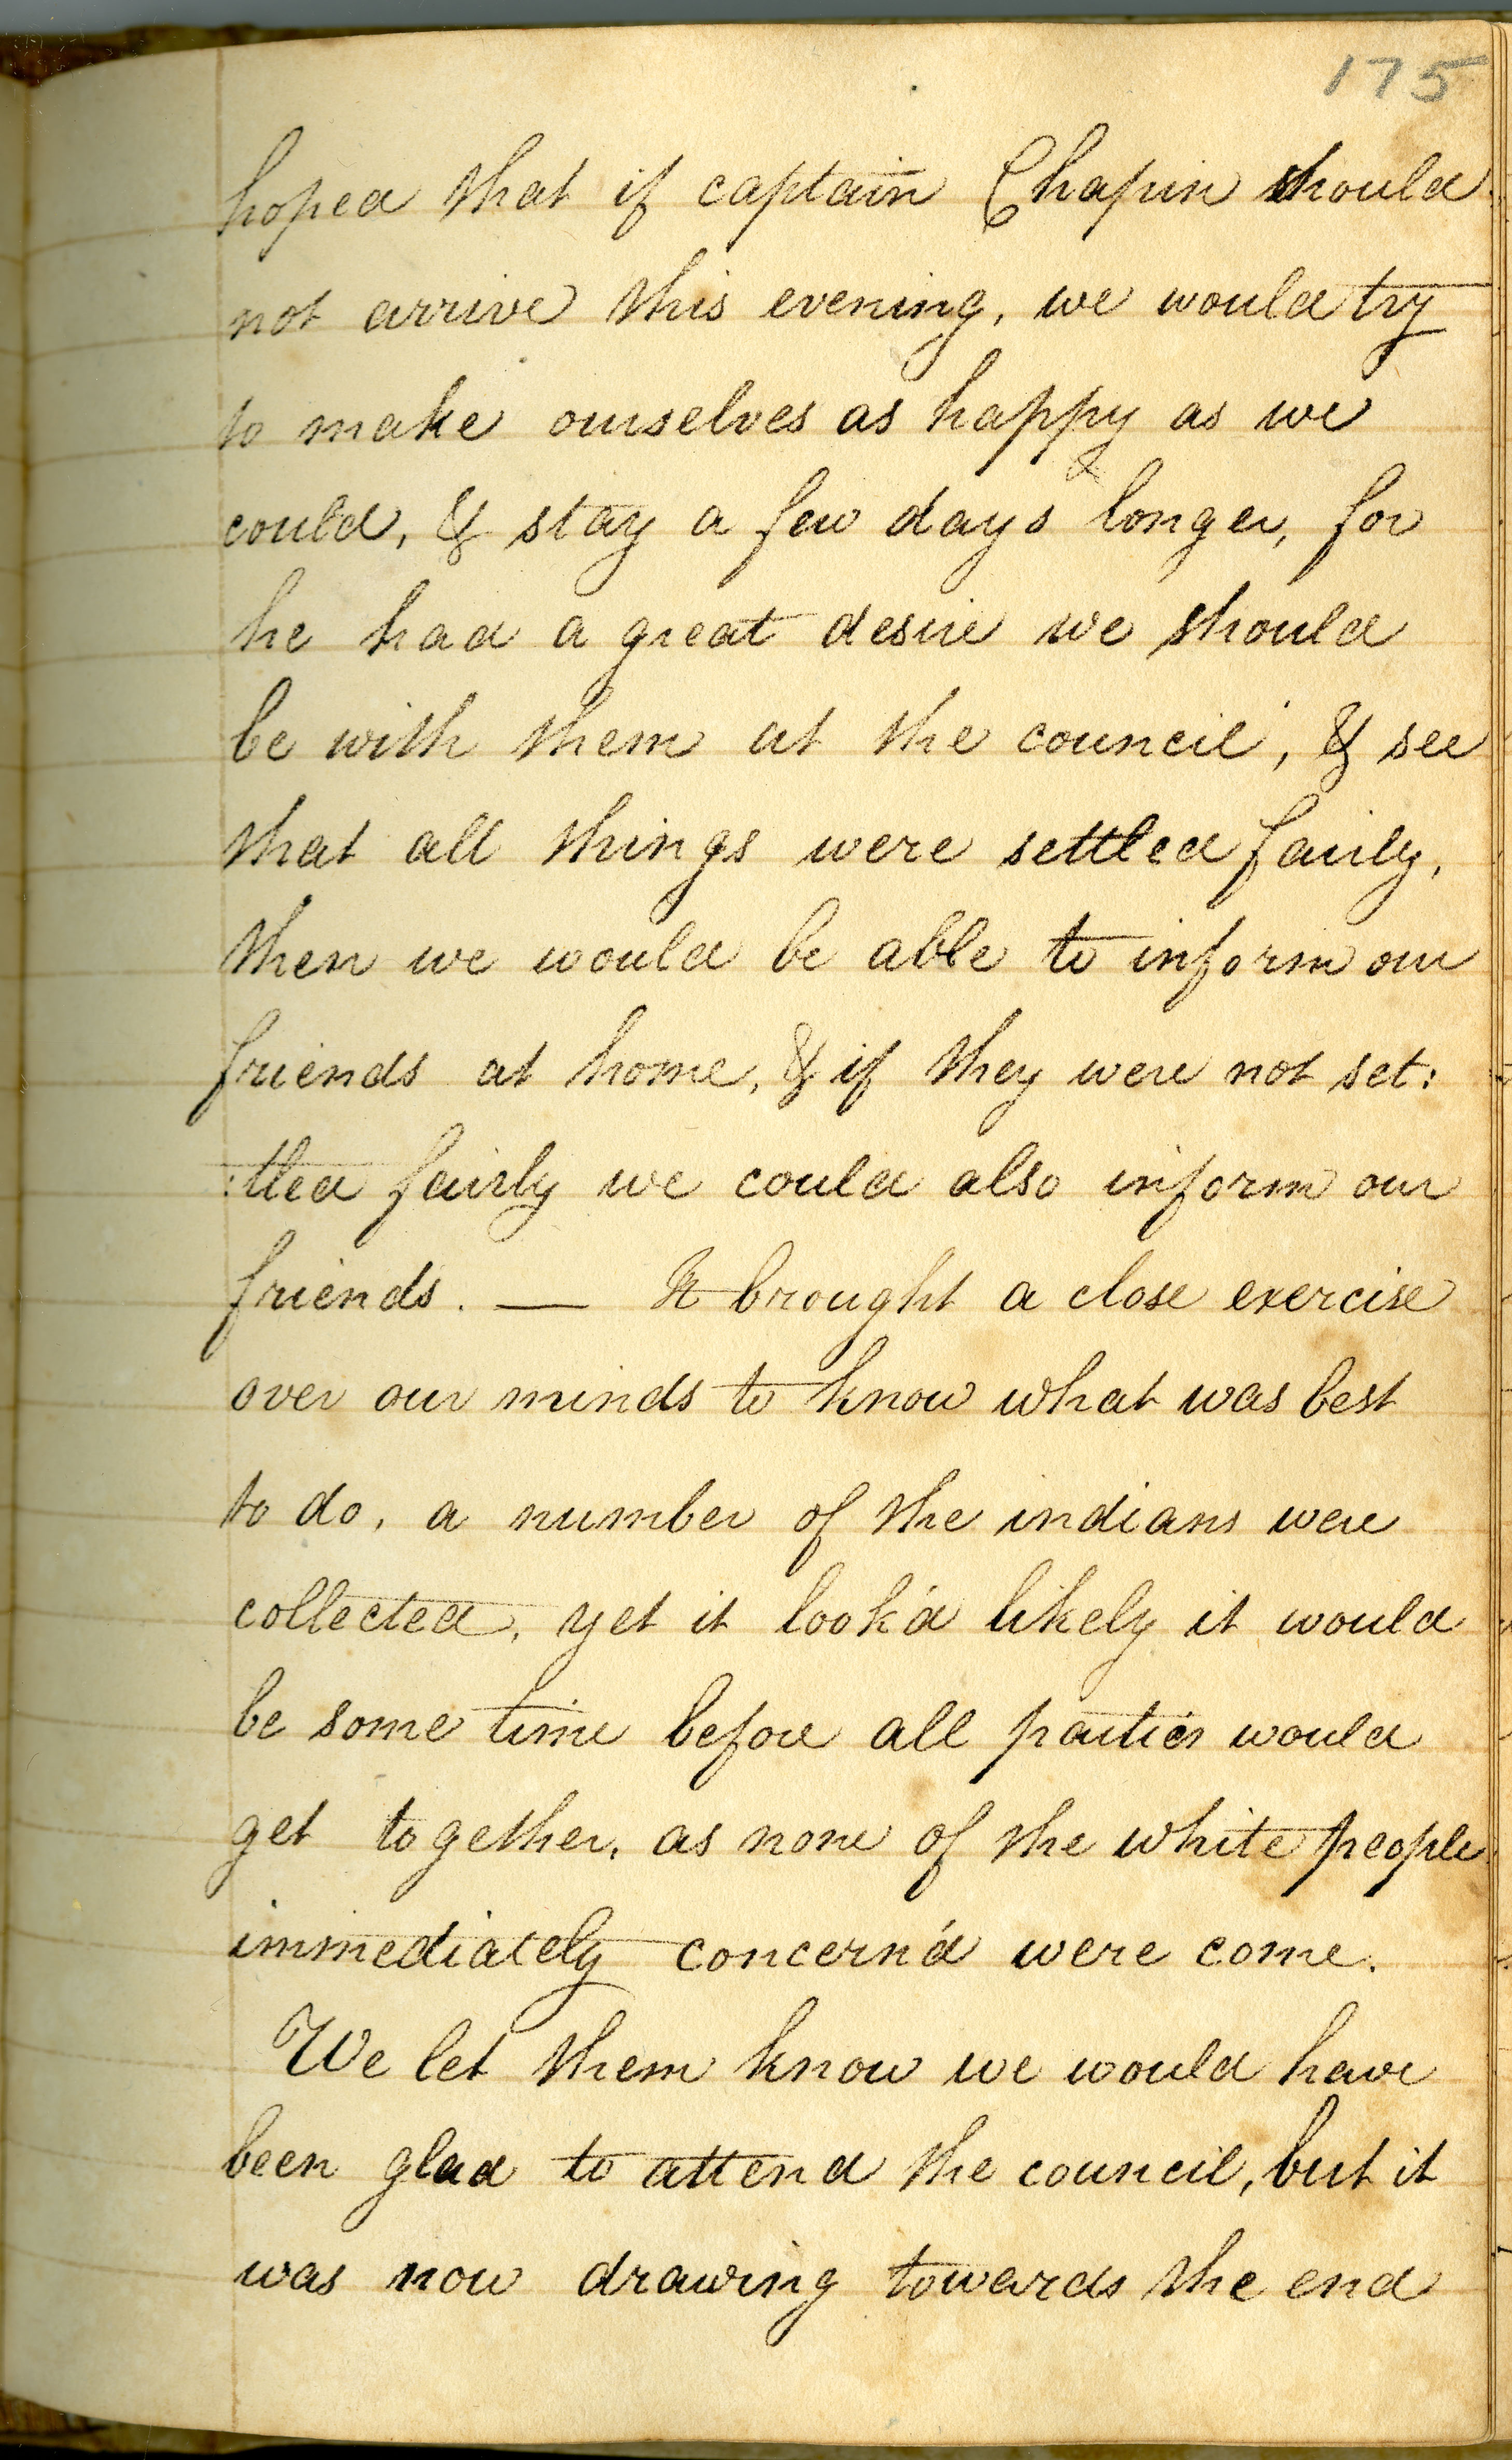 175
hoped that if captain Chapin should
not arrive this evening, we would try
to make ourselves as happy as we
could, & stay a few days longer, for
he had a great desire we should
be with them at the council, & see
that all things were settled fairly,
then we would be able to inform our
friends at home, & if they were not set:
:tled fairly we could also inform our
friends. — It brought a close exercise
over our minds to know what was best
to do, a number of the indians were
collected, yet it look'd likely it would
be some time before all parties would
get together, as none of the white people
immediately concern'd were come.
We let them know we would have
been glad to attend the council, but it
was now drawing towards the end